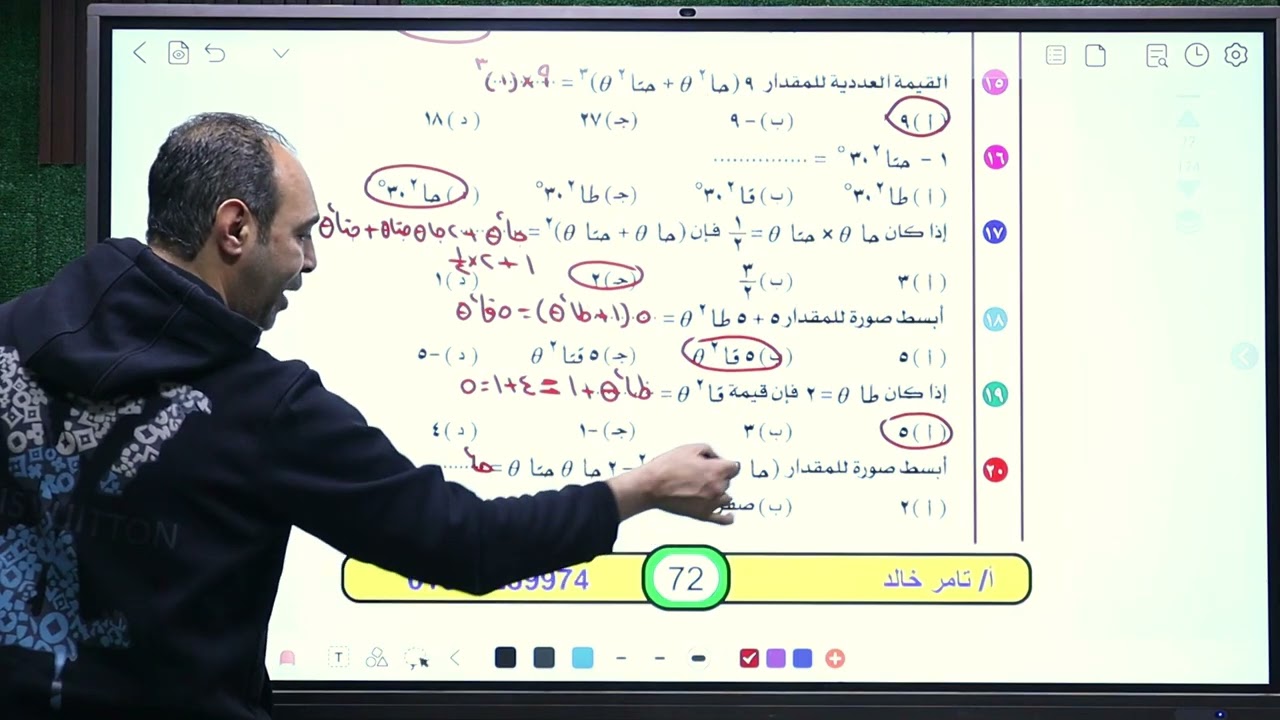 ١٥ القيمة العددية للمقدار ٩ (حا٢ θ + حتا٢ θ)٣ = ٩ × (١)٣
(أ) ٩ (ب) -٩ (جـ) ٢٧ (د) ١٨
١٦ ١ - حتا٢ ٣٠° = ...............
(أ) طا٢ ٣٠° (ب) قا٢ ٣٠° (جـ) طا٢ ٣٠° ( ) حا٢ ٣٠°
١٧ إذا كان حا θ × حتا θ = ١/٢ فإن (حا θ + حتا θ)٢ = حا٢ θ + ٢ حا θ حتا θ + حتا٢ θ
١ + ٢ ×
(أ) ٣ (ب) ٣/٢ (جـ) ٢ (د) ١
١٨ أبسط صورة للمقدار ٥ + ٥ طا٢ θ = ٥ (١ + طا٢ θ) = ٥ قا٢ θ
(أ) ٥ (ب) ٥ قا٢ θ (جـ) ٥ قتا٢ θ (د) -٥
١٩ إذا كان طا θ = ٢ فإن قيمة قا٢ θ = طا٢ θ + ١ = ٤ + ١ = ٥
(أ) ٥ (ب) ٣ (جـ) -١ (د) ٤
٢٠ أبسط صورة للمقدار (حا ٢ - ٢ حا θ حتا θ = حا٢
(أ) ٢ (ب) صفر
أ/ تامر خالد 72 9974